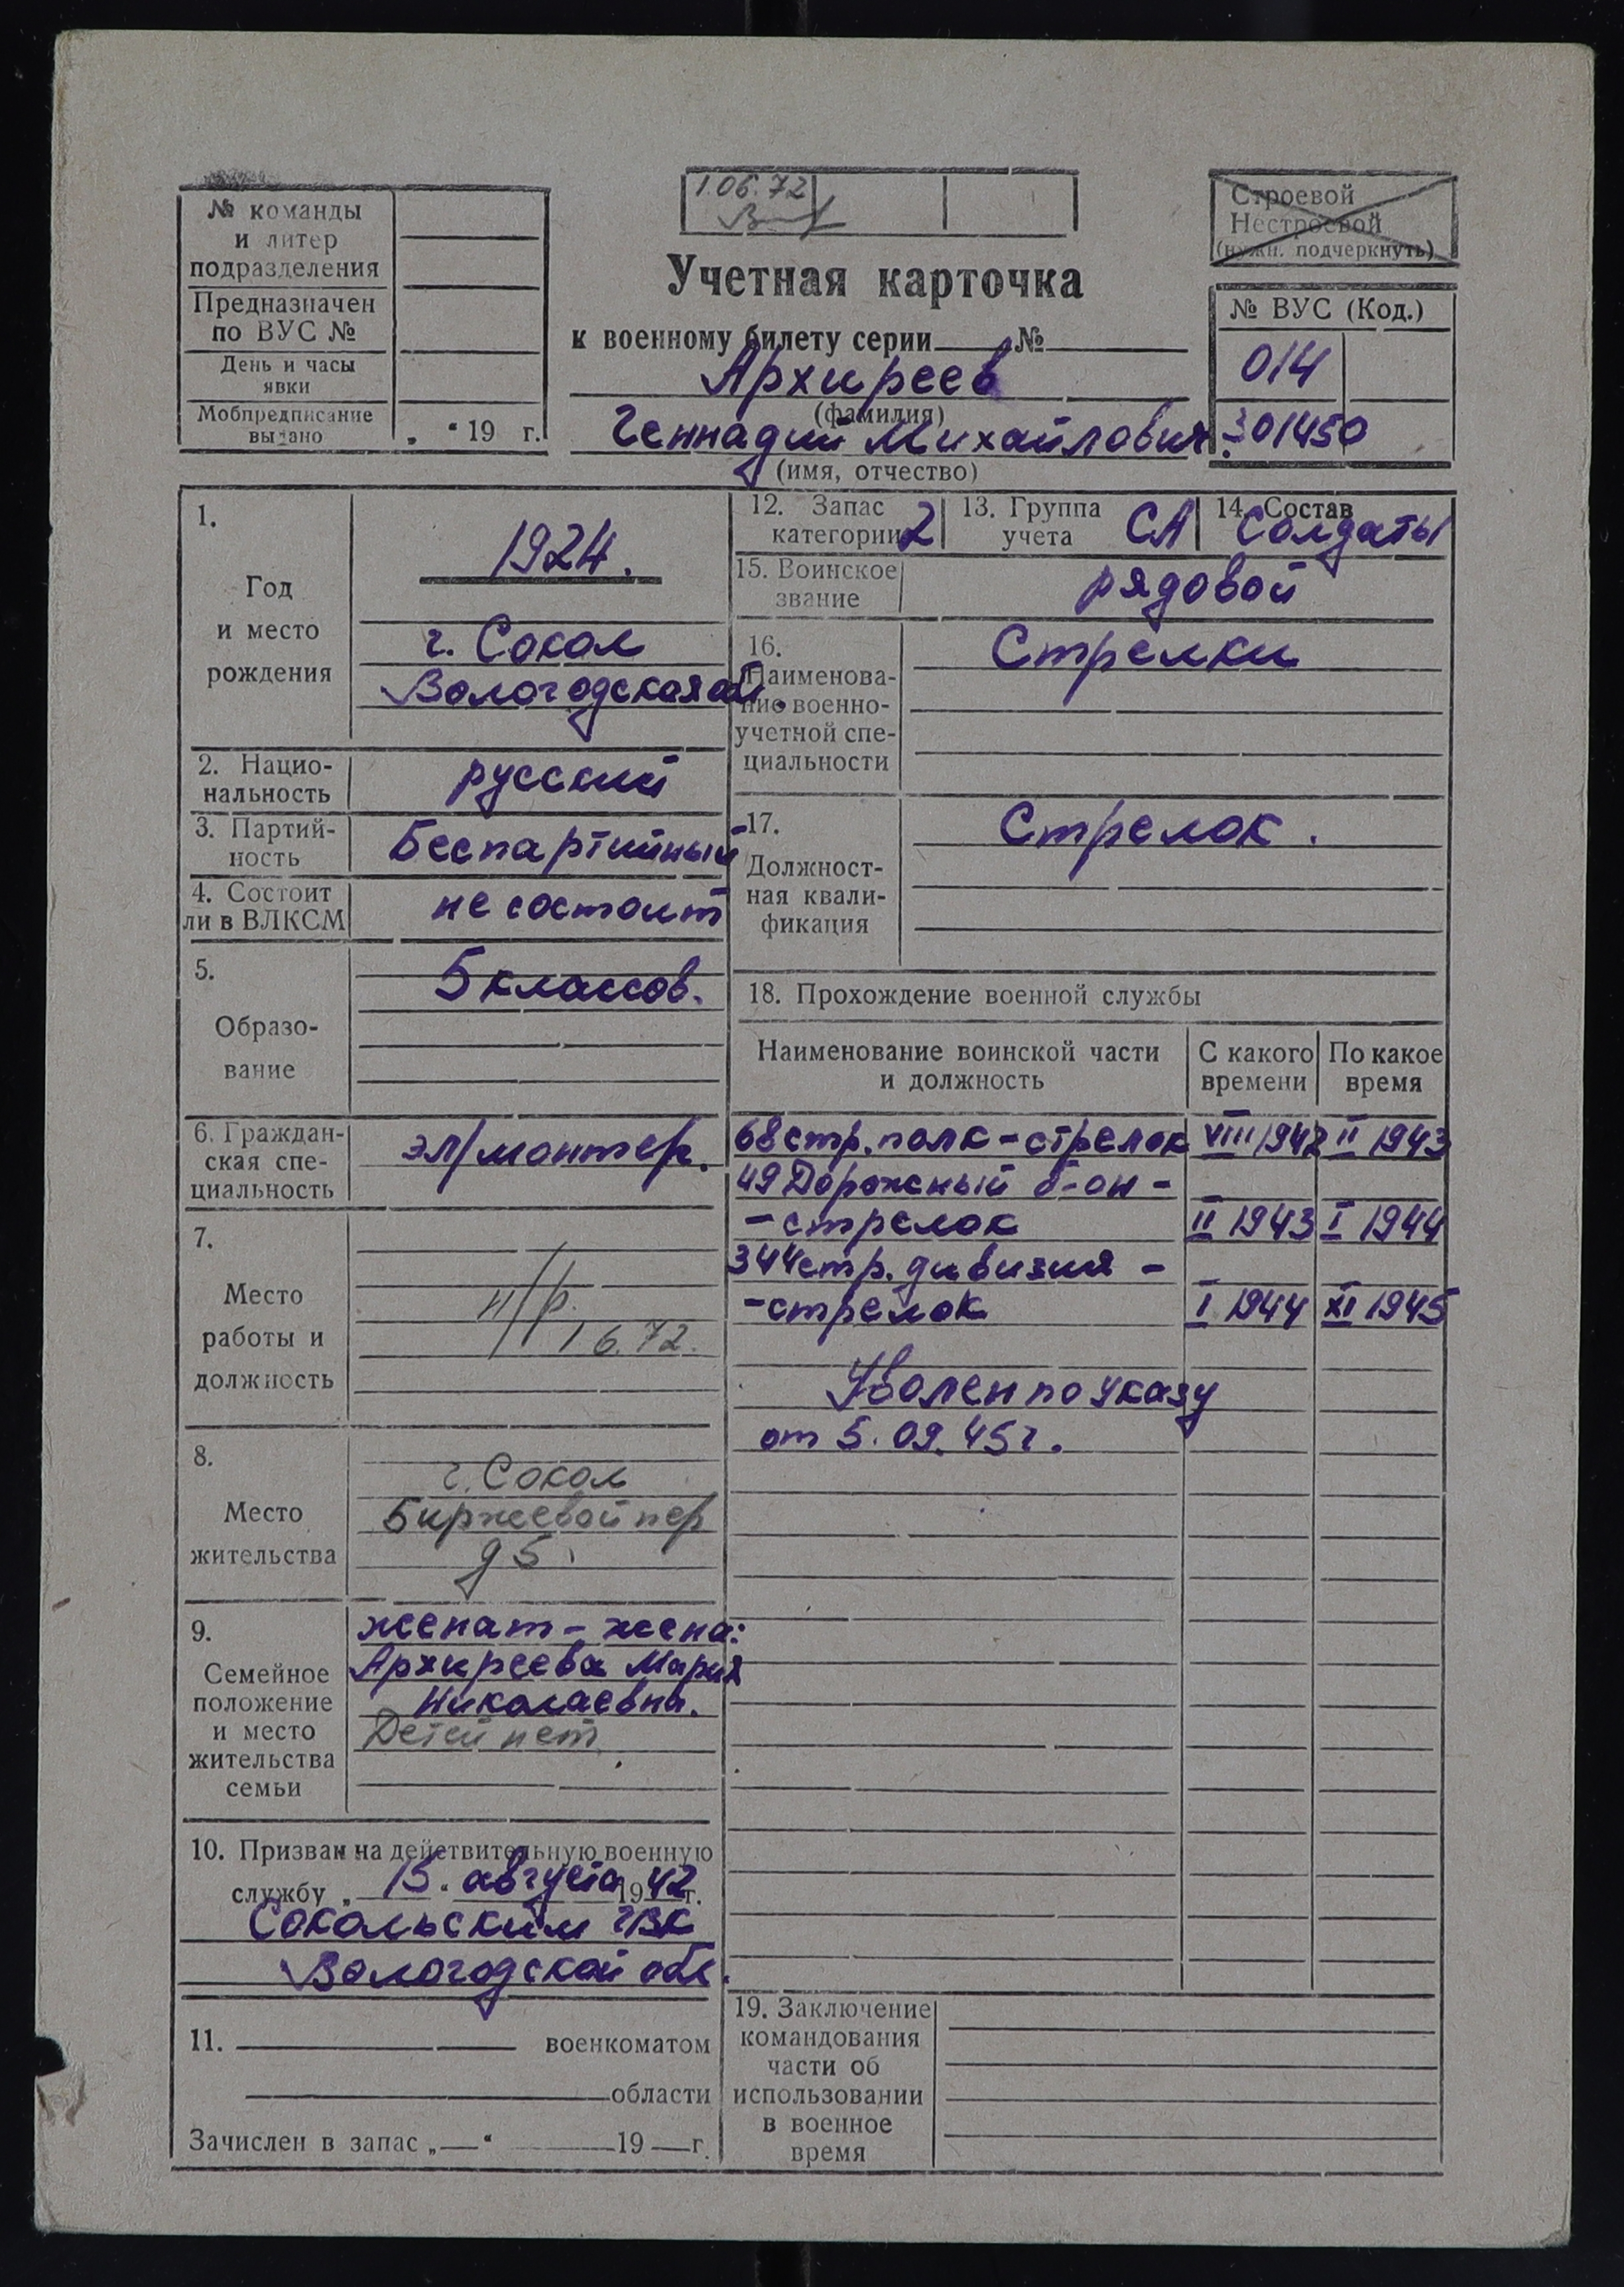 № команды
и литер
подразделения
Предназначен
по ВУС №
День и часы
явки
Мобпредписание
выдано
„ “ 19 г.
1.06.72
Учетная карточка
к военному билету серии №
Архиреев
(фамилия)
Геннадий Михайлович.
(имя, отчество)
Строевой
Нестроевой
(нужн. подчеркнуть)
№ ВУС (Код.)
014
301450
1.
Год
и место
рождения
1924.
г. Сокол
Вологодская об.
2. Нацио-
нальность
русский
3. Партий-
ность
Беспартийный
4. Состоит
ли в ВЛКСМ
не состоит
5.
Образо-
вание
5 классов.
6. Граждан-
ская спе-
циальность
эл/монтер.
7.
Место
работы и
должность
н/р.
1 6.72.
8.
Место
жительства
г. Сокол
Биржевой пер
д 5.
9.
Семейное
положение
и место
жительства
семьи
женат - жена:
Архиреева Мария
Николаевна.
Детей нет
10. Призван на действительную военную
службу „ 15 “ августа 1942 г.
Сокольским ГВК
Вологодской обл.
11. военкоматом
области
Зачислен в запас „ “ 19 г.
12. Запас
категории 2
13. Группа
учета СА
14. Состав
Солдаты
15. Воинское
звание
рядовой
16.
Наименова-
ние военно-
учетной спе-
циальности
Стрелки
17.
Должност-
ная квали-
фикация
Стрелок.
18. Прохождение военной службы
Наименование воинской части
и должность
С какого
времени
По какое
время
68 стр. полк - стрелок VIII 1942 II 1943
49 Дорожный б-он -
- стрелок II 1943 I 1944
344 стр. дивизия -
- стрелок I 1944 XI 1945
Уволен по указу
от 5.09.45 г.
19. Заключение
командования
части об
использовании
в военное
время